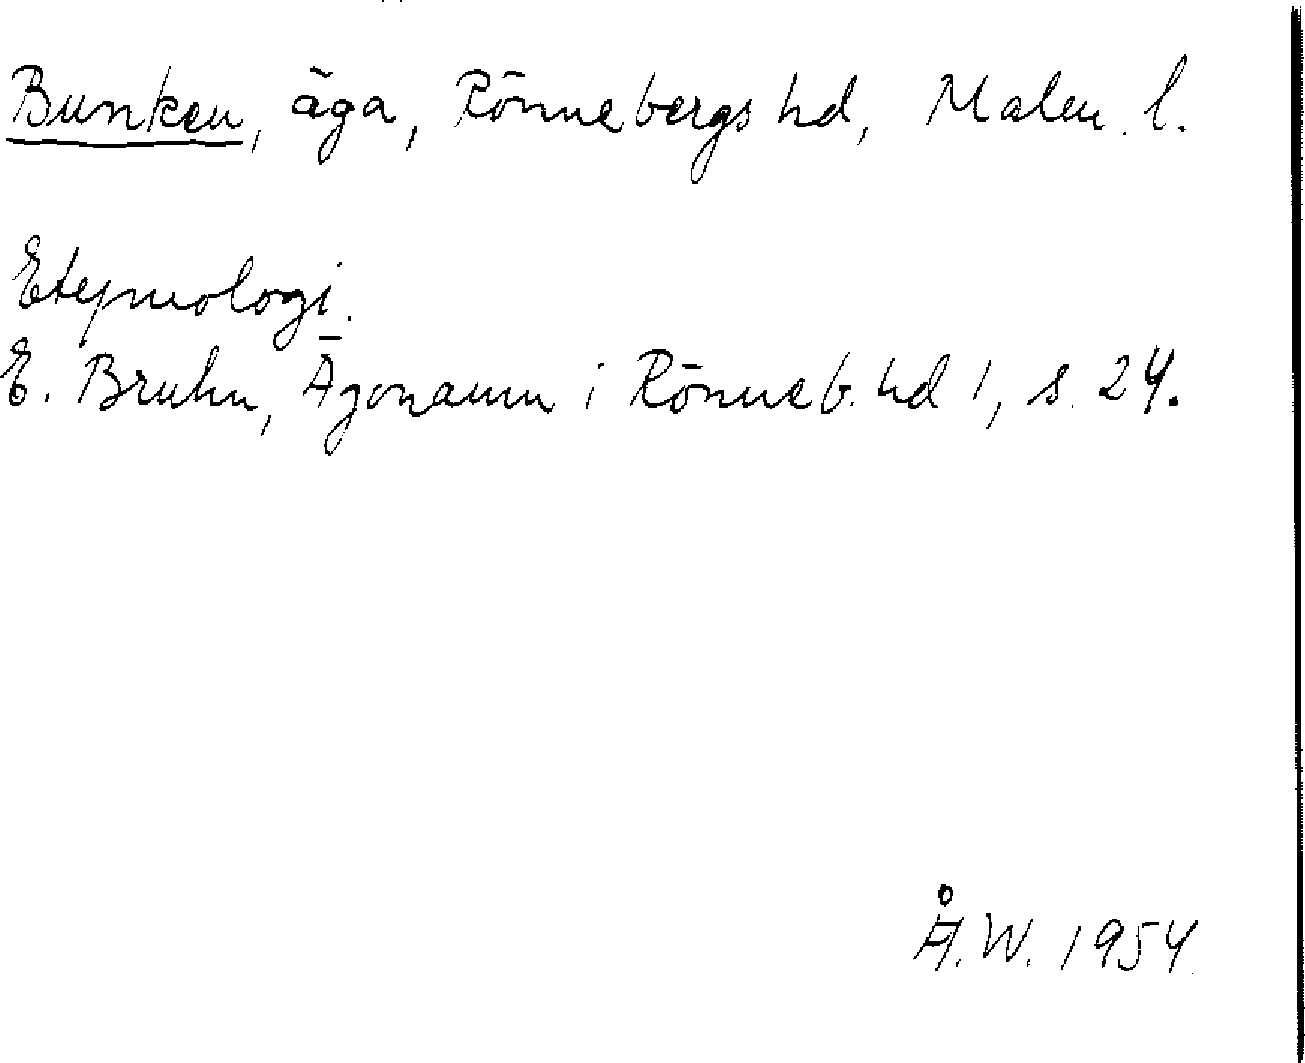 Bunken, äga, Rönnebergs hd, Malm. l.
Etymologi.
E. Bruhn, Ägonamn i Rönneb. hd 1, s. 24.
Å.W. 1954